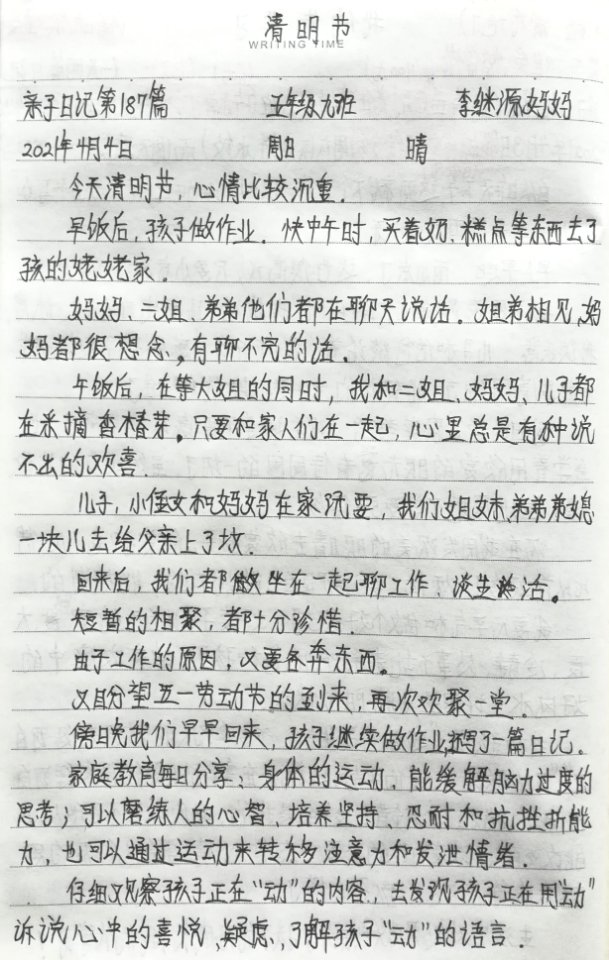 清明节
WRITING TIME
亲子日记第187篇 五年级九班 李继源妈妈
2021年4月4日 周日 晴
今天清明节，心情比较沉重．
早饭后，孩子做作业．快中午时，买着奶、糕点等东西去了
孩的姥姥家．
妈妈、二姐、弟弟他们都在聊天说话．姐弟相见，妈
妈都很想念，有聊不完的话．
午饭后，在等大姐的同时，我和二姐、妈妈、儿子都
在采摘香椿芽。只要和家人们在一起，心里总是有种说
不出的欢喜．
儿子，小侄女和妈妈在家玩耍，我们姐妹、弟弟弟媳
一块儿去给父亲上了坟．
回来后，我们都坐在一起聊工作，谈生活。
短暂的相聚，都十分珍惜．
由于工作的原因，又要各奔东西。
又自分望五一劳动节的到来，再次欢聚一堂．
傍晚我们早早回来，孩子继续做作业，写了一篇日记．
家庭教育每日分享：身体的运动，能缓解脑力过度的
思考；可以磨练人的心智、培养坚持、忍耐和抗挫折能
力，也可以通过运动来转移注意力和发泄情绪．
仔细观察孩子正在“动”的内容，去发现孩子正在用“动”
诉说心中的喜悦，疑虑，了解孩子“动”的语言．